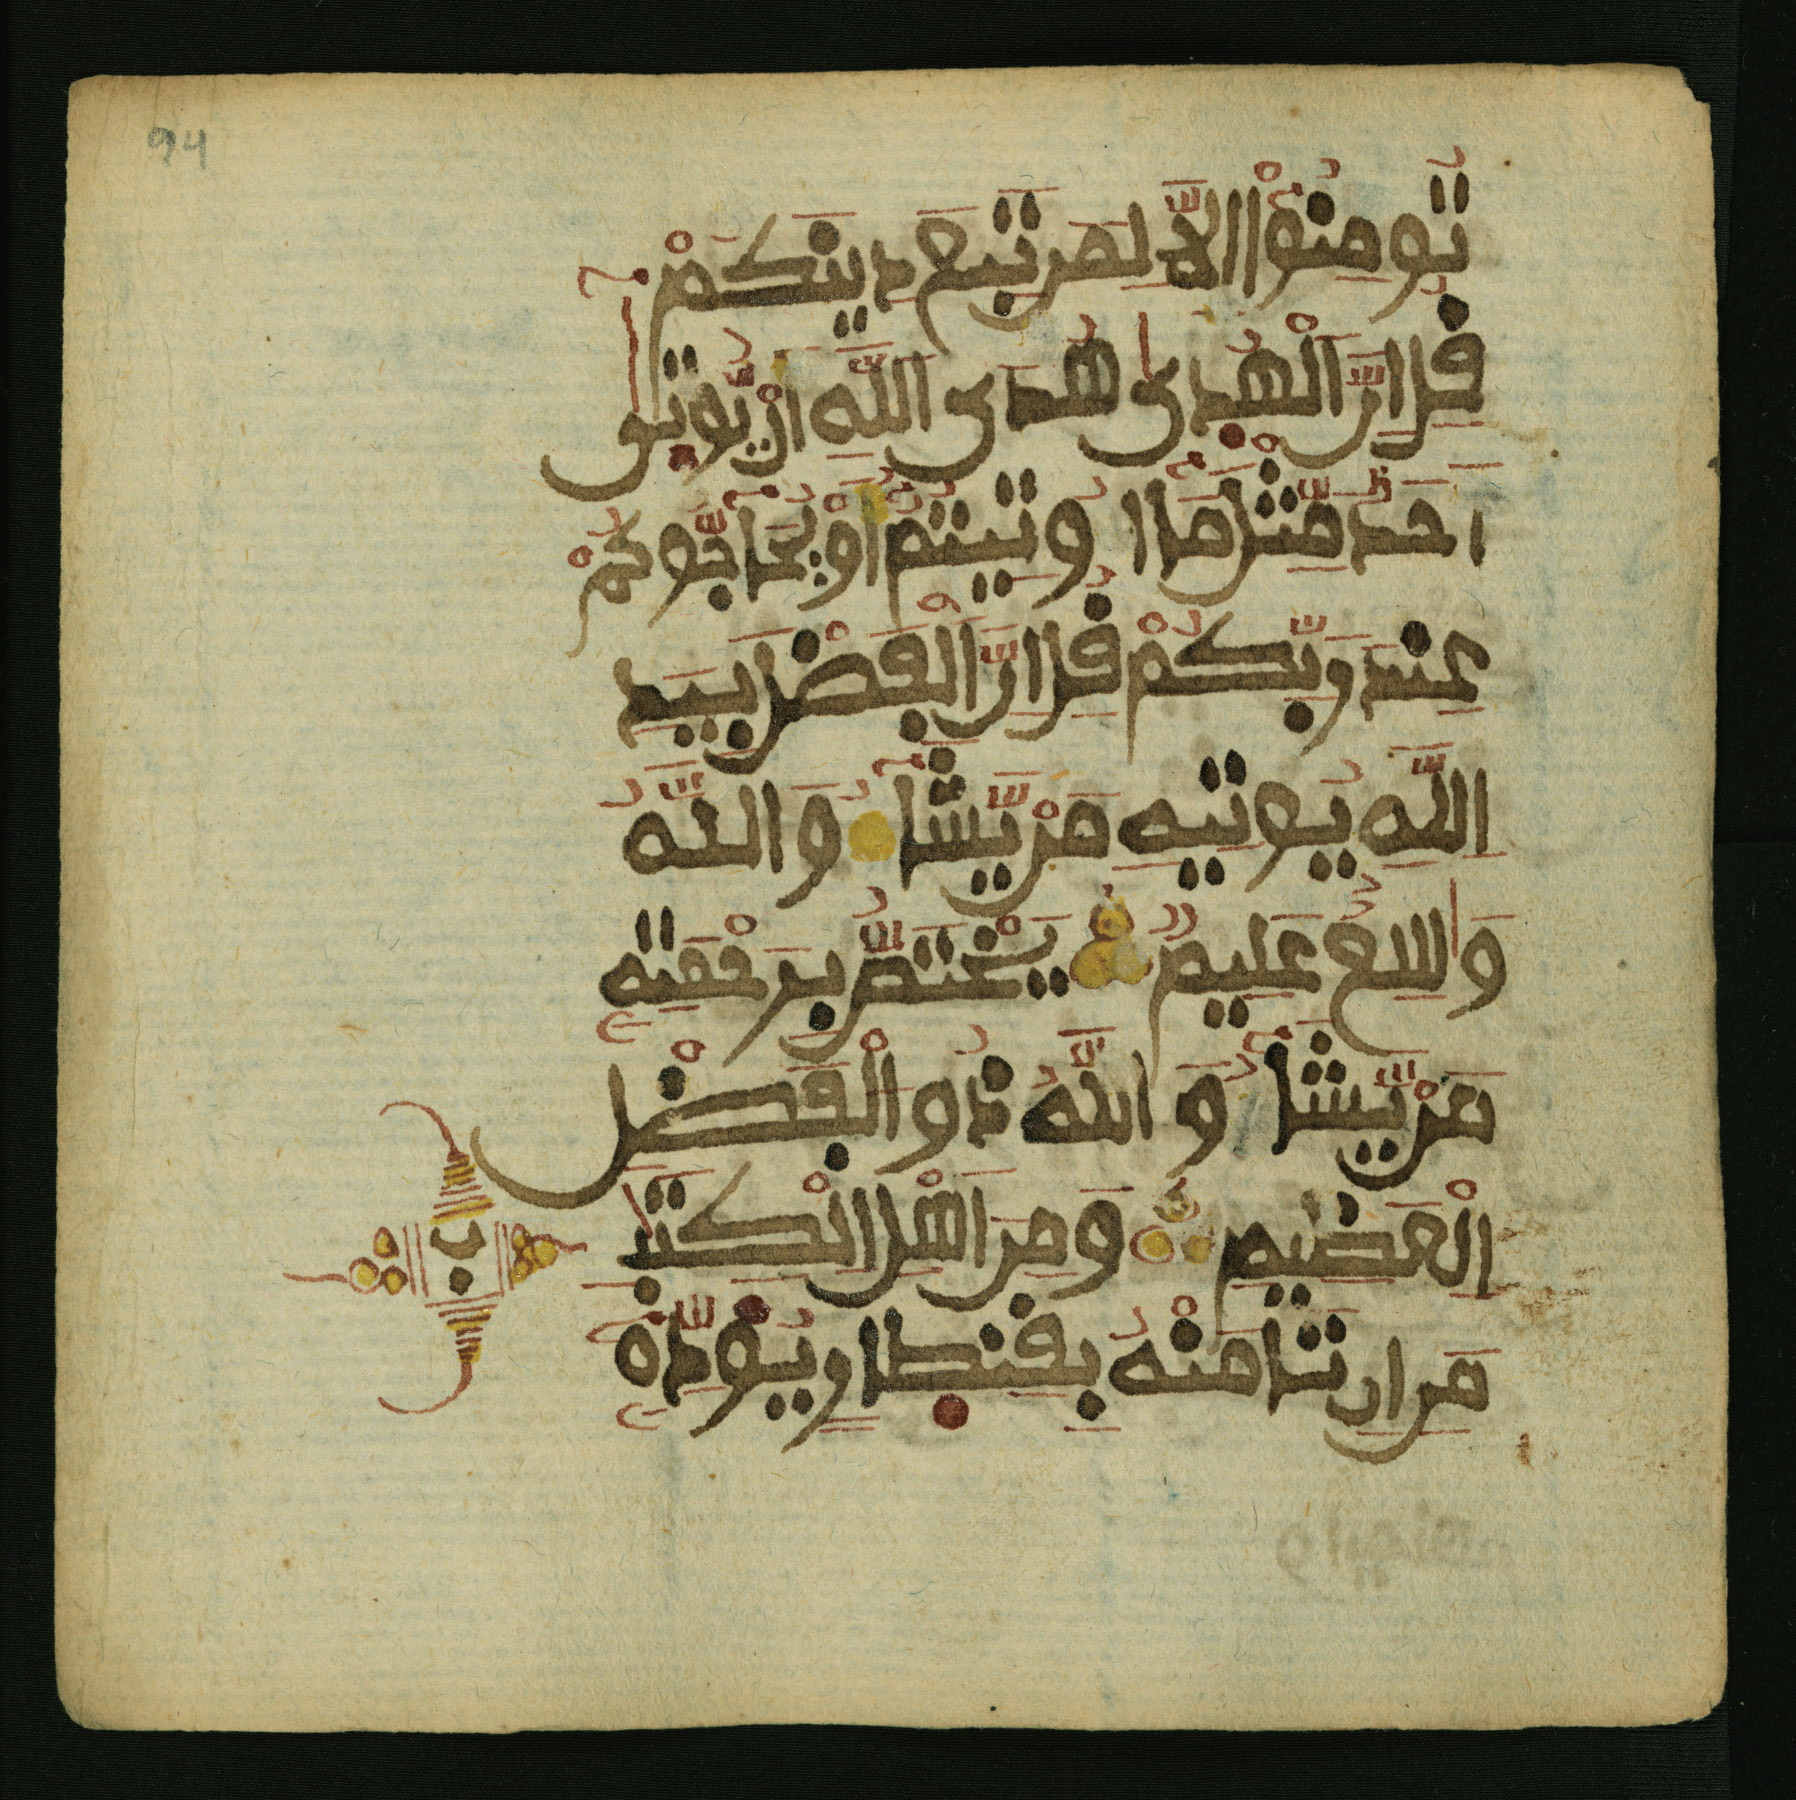 94
تُومِنُوٓا۟ إِلَّا لِمَن تَبِعَ دِينَكُمْ
قُلْ إِنَّ ٱلْهُدَىٰ هُدَى ٱللَّهِ أَنْ يُّوتِىٰٓ
أَحَدٌ مِّثْلَ مَآ أُوتِيتُمُۥٓ أَوْ يُحَآجُّوكُمْ
عِندَ رَبِّكُمْ قُلْ إِنَّ ٱلْفَضْلَ بِيَدِ
ٱللَّهِ يُوتِيهِ مَنْ يَّشَآءُ وَٱللَّهُ
وَٰسِعٌ عَلِيمٌ يَخْتَصُّ بِرَحْمَتِهِۦ
مَنْ يَّشَآءُ وَٱللَّهُ ذُو ٱلْفَضْلِ
ٱلْعَظِيمِ وَمِنْ أَهْلِ ٱلْكِتَٰبِ
ب
مَنِ إِن تَامَنْهُ بِقِنطَارٍ يُؤَدِّهِۦٓ